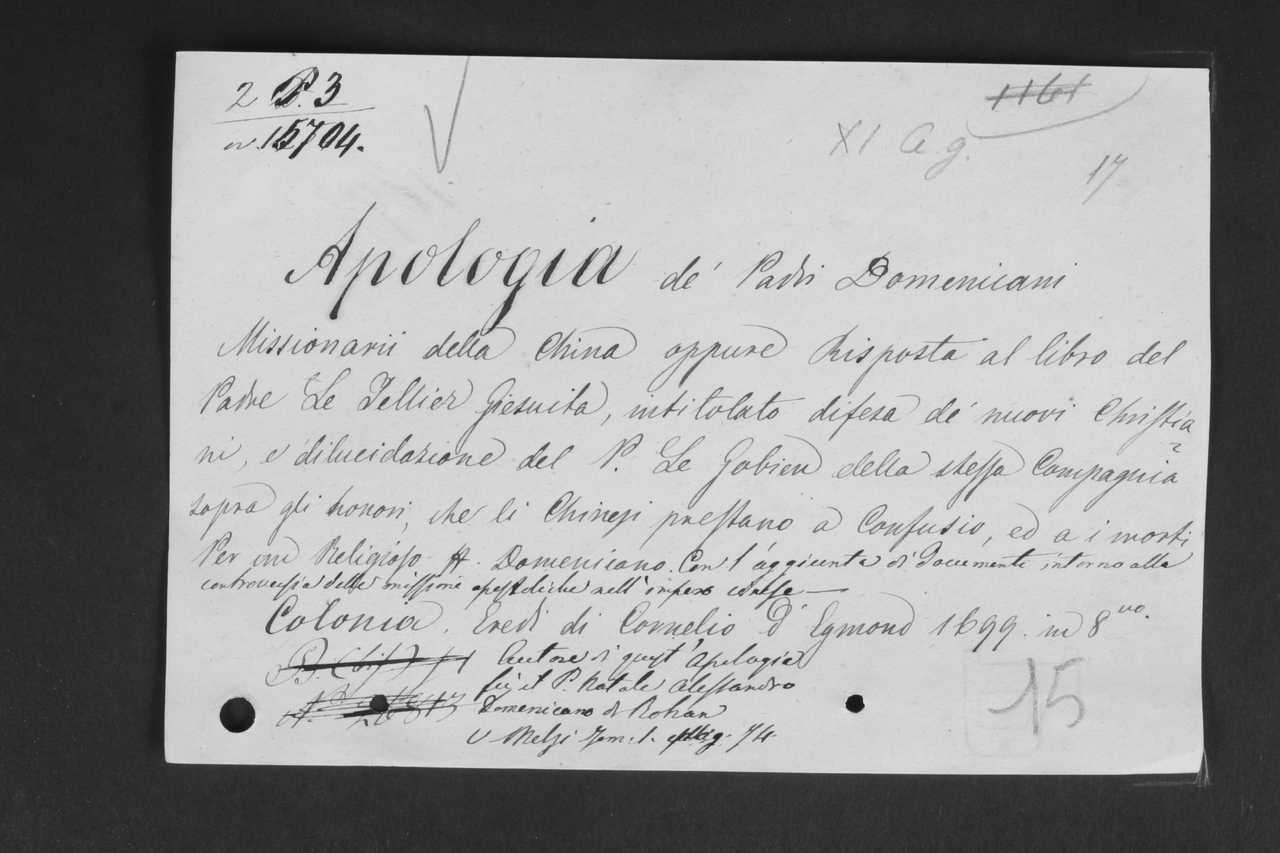 2 P. 3
n. 15704.
1161
XI a g.
17
Apologia de' Padri Domenicani
Missionarii della China oppure Risposta al libro del
Padre Le Tellier Giesuita, intitolato difesa de' nuovi Christia
ni, e dilucidazione del P. Le Gobien della stessa Compagnia
sopra gli honori, che li Chinesi prestano a Confusio, ed a i morti
Per un Religioso Domenicano. Con l'aggiunta di Documenti intorno alla
controversia delle missioni apostoliche nell'impero cinese —
Colonia. Eredi di Cornelio D'Egmond 1699. in 8vo.
Autore di quest'Apologia
fù il P. Natale Alessandro
Domenicano di Rohan
V Melzi Tom. 1. pag. 74.
15